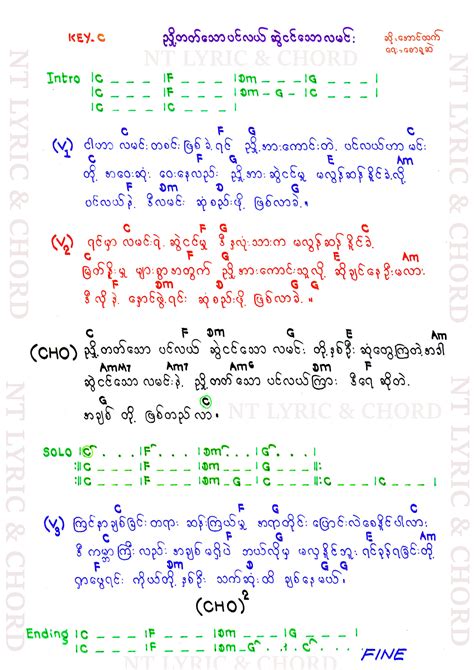 KEY.C ညှို့တတ်သောပင်လယ် ဆွဲငင်သောလမင်း
ဆို-အောင်ထက်
NT LYRIC & CHORD
Intro |C _ _ _ |F _ _ _ |Dm _ _ _ |G _ _ _ |
|C _ _ _ |F _ _ _ |Dm _ G _ |C _ _ _ |
|C _ _ _ |C _ _ _ |
C F G C
(V1) ငါဟာ လမင်းတစင်း ဖြစ်ခဲ့ရင် ညှို့အားကောင်းတဲ့ ပင်လယ်ဟာ မင်း
F G E Am
တို့ အဝေးဆုံး ဝေးနေလည်း ညှို့အားဆွဲငင်မှု မလွန်ဆန်နိုင်ခဲ့လို့
F Dm G C
ပင်လယ်နဲ့ ဒီလမင်း ဆုံစည်းဖို့ ဖြစ်လာခဲ့။
C F G C
(V2) ရင်မှာ လမင်းရဲ့ ဆွဲငင်မှု ဒီနှလုံးသားက မလွန်ဆန်နိုင်ခဲ့
C F G E Am
မြတ်နိုးမှု များစွာအတွက် ညှို့အားကောင်းသူလို့ ဆိုချင်နေဦးမလား
F Dm G C
ဒီလိုနဲ့ နှောင်ဖွဲ့ရင်း ဆုံစည်းဖို့ ဖြစ်လာခဲ့။
C F Dm G E Am
(CHO) ညှို့တတ်သော ပင်လယ် ဆွဲငင်သော လမင်း တို့နှစ်ဦး ဆုံတွေ့ကြတဲ့အခါ
AmM7 Am7 Am6 F Dm G
ဆွဲငင်သော လမင်းနဲ့ ညှို့တတ်သော ပင်လယ်ကြား ဒီရေ ဆိုတဲ့
C
အချစ် တို့ ဖြစ်တည်လာ။
NT LYRIC & CHORD
SOLO |C . . . |F . . . |Dm . . . |G . . . |
||:C _ _ _ |F _ _ _ |Dm _ _ _ |G _ _ _ :||
||:C _ _ _ |F _ _ _ |Dm _ G _ |C _ _ _ :|| C _ _ _ |C _ _ _ |
C F G C
(V3) ကြင်နာချစ်ခြင်းတရား ဆန်းကြယ်မှု အရာတိုင်း ပြောင်းလဲစေနိုင်ပါလား
F G E Am
ဒီကမ္ဘာကြီးလည်း အချစ်မရှိပဲ ဘယ်လိုမှ မလှနိုင်ဘူး ရင်ခုန်ရခြင်းတို့
F Dm G G
ရှာမွေရင်း ကိုယ်တို့နှစ်ဦး သက်ဆုံးထိ ချစ်နေမယ်။
(CHO)2
Ending |C _ _ _ |F _ _ _ |Dm _ _ _ |G _ _ _ |
|C _ _ _ |F _ _ _ |Dm . G . |C . . . |
FINE
NT LYRIC & CHORD
NT LYRIC & CHORD
NT LYRIC & CHORD